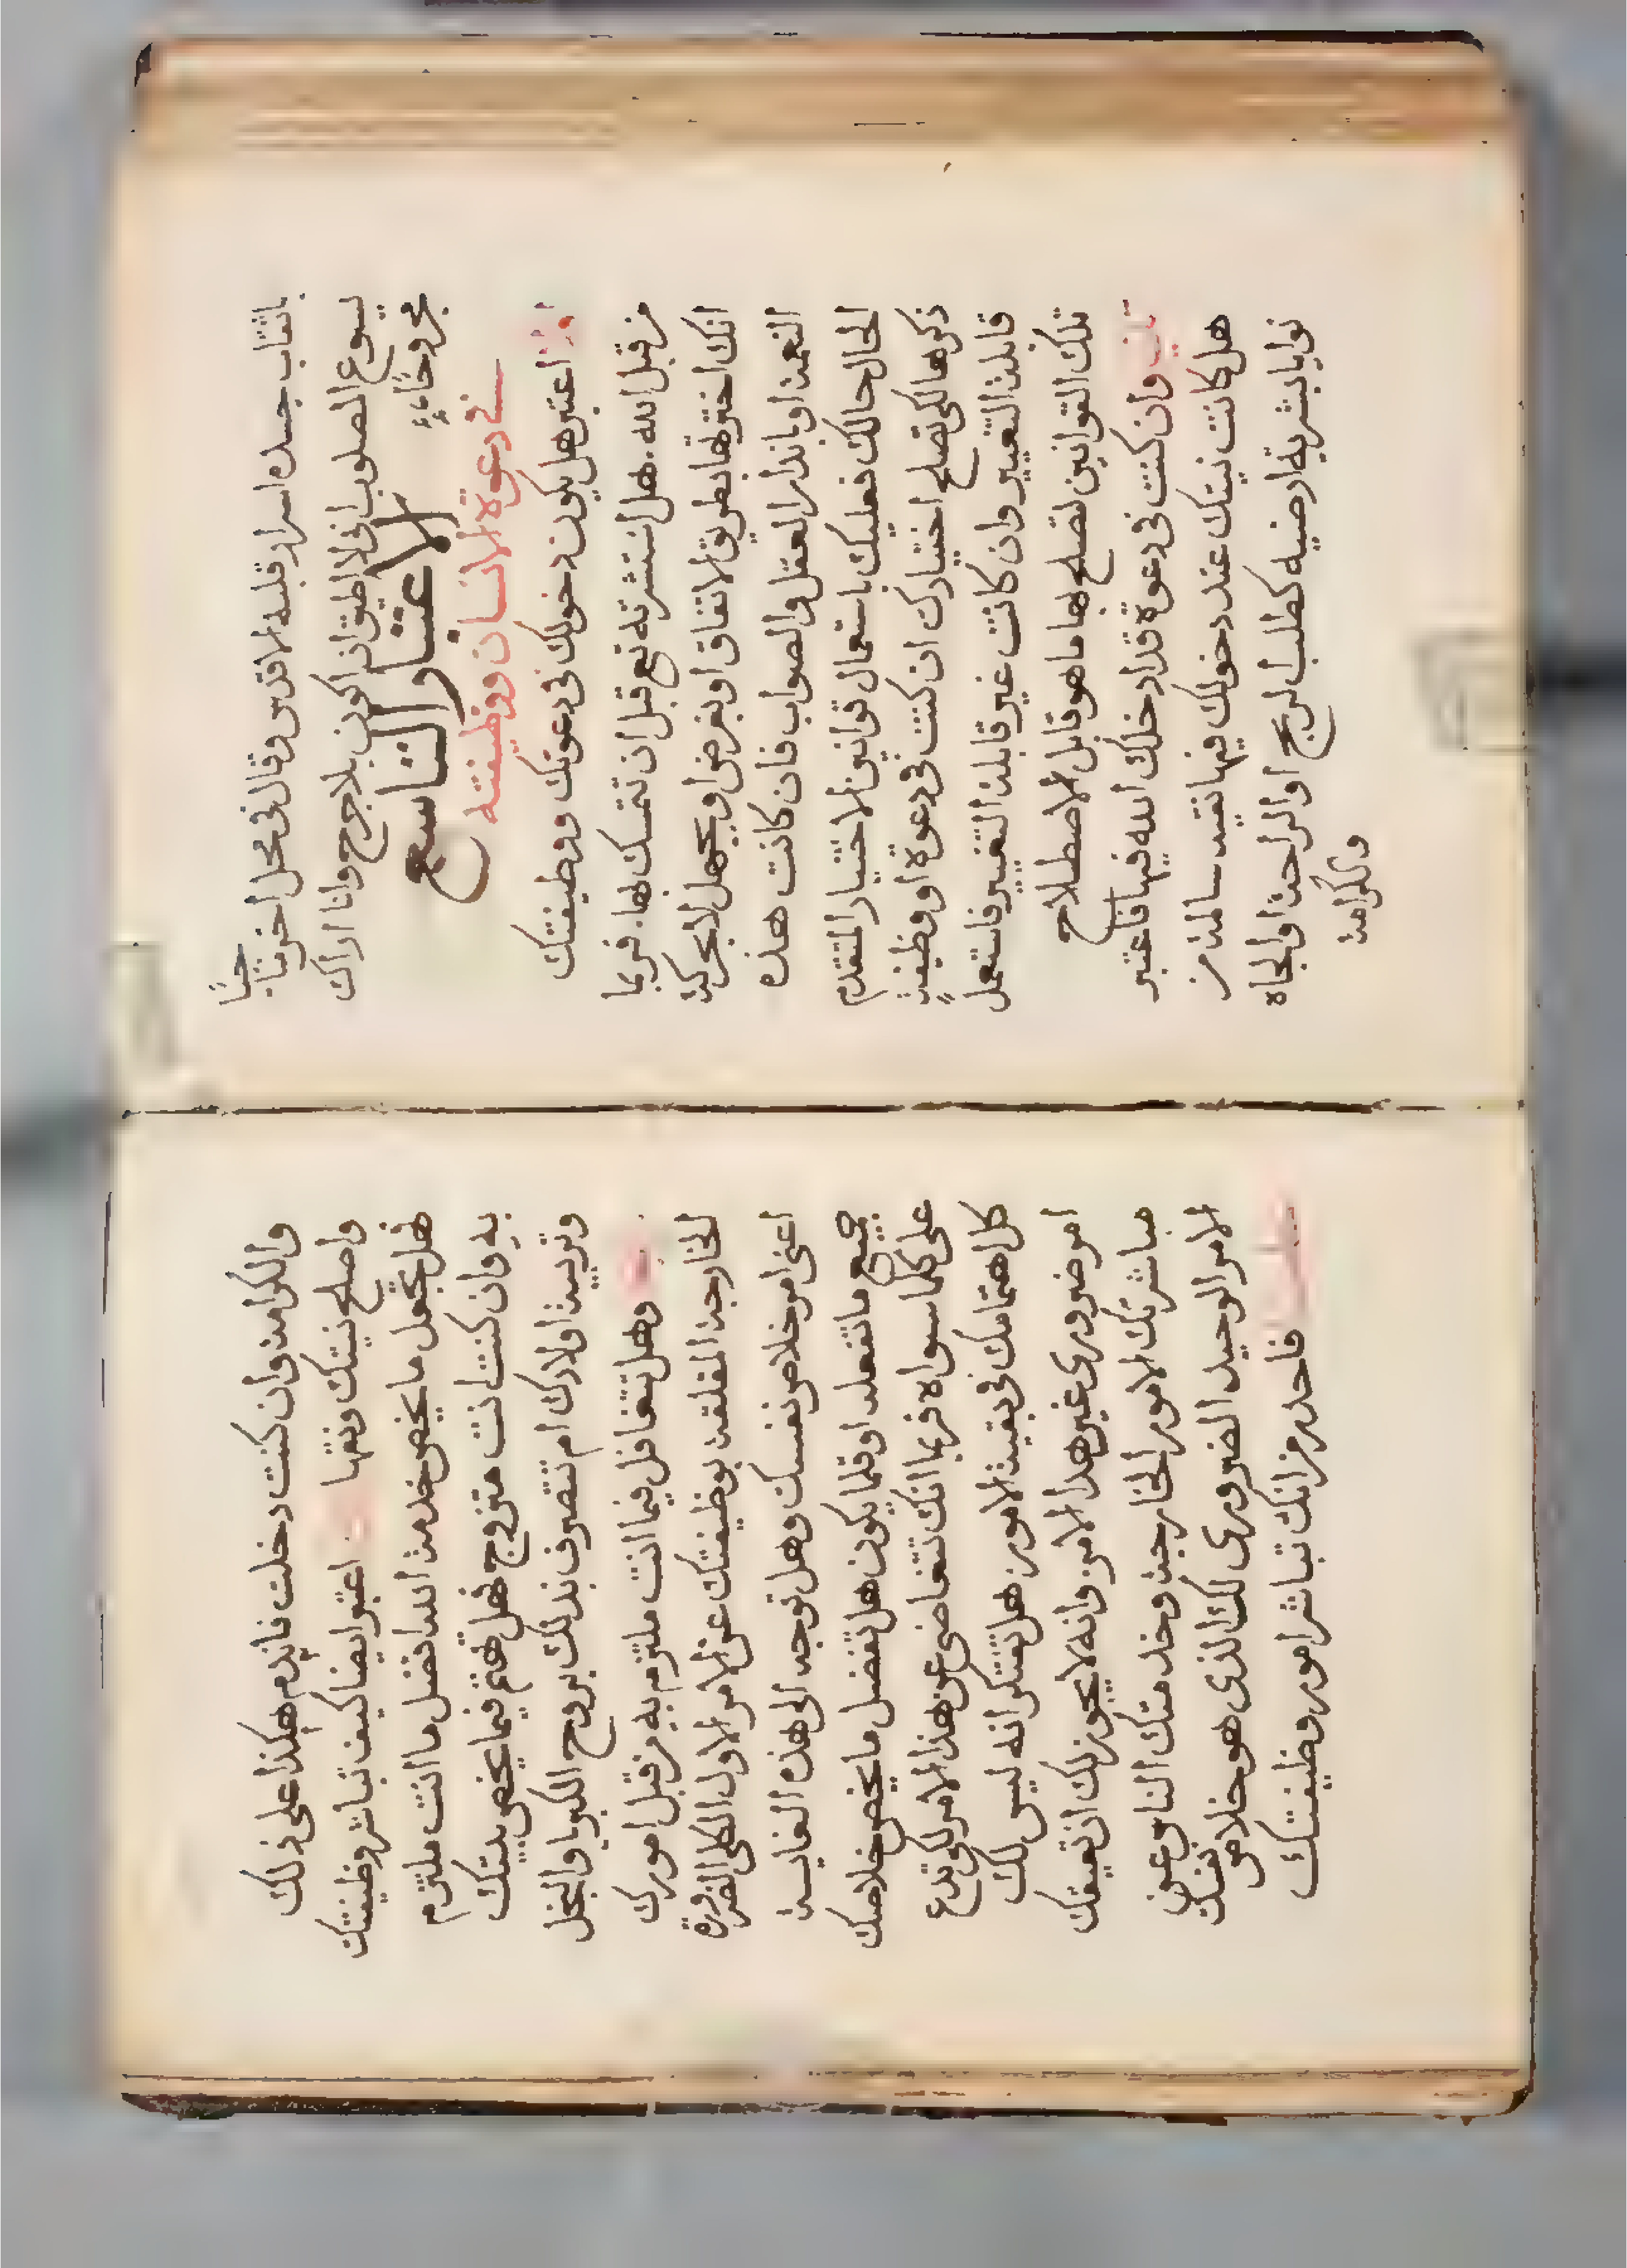 باثقاب جسده اسرار قلبه الاقدس وقال فى محل اخر منا جيًا
يسوع المصلوب انى لا اطيق ان اكون بلا جرح وانا اراك
مجروحًا
الاعتبار التاسع
فى دعوة الانسان ووظيفته
اولا اعتبر هل يكون دخولك فى دعوتك ووظيفتك
من قبل الله. هل استشرته تع قبل ان تتمسك بها. فربما
انك اخترتها بطريق الاتفاق او بغرض او بجهل لا بحركة
النعمة او بانذار العقل والصواب فان كانت هذه
الحال حالك فعليك باستعمال قوانين الاختيار المتقدم
ذكرها لكى تصلح اختيارك ان كنت فى دعوة او وظيفةٍ
قابلة التغيير وان كانت غير قابلة التغيير فاستعمل
تلك القوانين لتصلح بها ما هو قابل الاصطلاح
ثانيا وان كنت فى دعوة قد ادخلك الله فيها فاعتبر
هل كانت نيتك عند دخولك فيها نقيه سالمة من
نوايا بشرية ارضيه كطلب الربح او الراحة او الجاه
والكرامة
والكرامة وان كنت دخلت فاندم هكذا على ذلك
واصلح نيتك ونقها اعتبر ايضا كيف تباشر وظيفتك
فهل تجعل ما يخص خدمة الله افضل ما انت ملتزم
به وان كنت انت متزوج فهل تهتم فيما يخص بيتك
وتربية اولادك ام تتصرف بذلك بروح الكبريا والبخل
وهل تتغافل فيما انت ملتزم به من قبل امورك
الخارجة المقلقة بوظيفتك عن الامر الاول الكلى الضرورة
اعنى امر خلاص نفسك وهل توجه الى هذه الغاية
جميع ما تفعله او قلما يكون هل تفضل ما يخص خلاصك
على كلما سواه فربما انك تتغاضى عن هذا الامر لكى تدع
كل اهتمامك فى بقية الامور هل تفتكر انه ليس لك
امر ضرورى غير هذا الامر وانه لا يجوز لك ان تعيقك
مباشرتك الامور الخارجة وخدمتك الناس عن
الامر الوحيد الضرورى لك الذى هو خلاص نفسك
فاحذر من انك تباشر امور وظيفتك